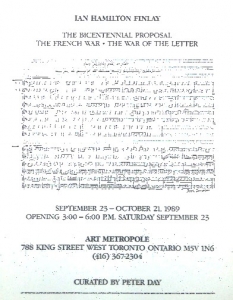 IAN HAMILTON FINLAY
THE BICENTENNIAL PROPOSAL
THE FRENCH WAR • THE WAR OF THE LETTER
SEPTEMBER 23 – OCTOBER 21, 1989
OPENING 3:00 – 6:00 P.M. SATURDAY SEPTEMBER 23
ART METROPOLE
788 KING STREET WEST TORONTO ONTARIO M5V 1N6
(416) 367-2304
CURATED BY PETER DAY